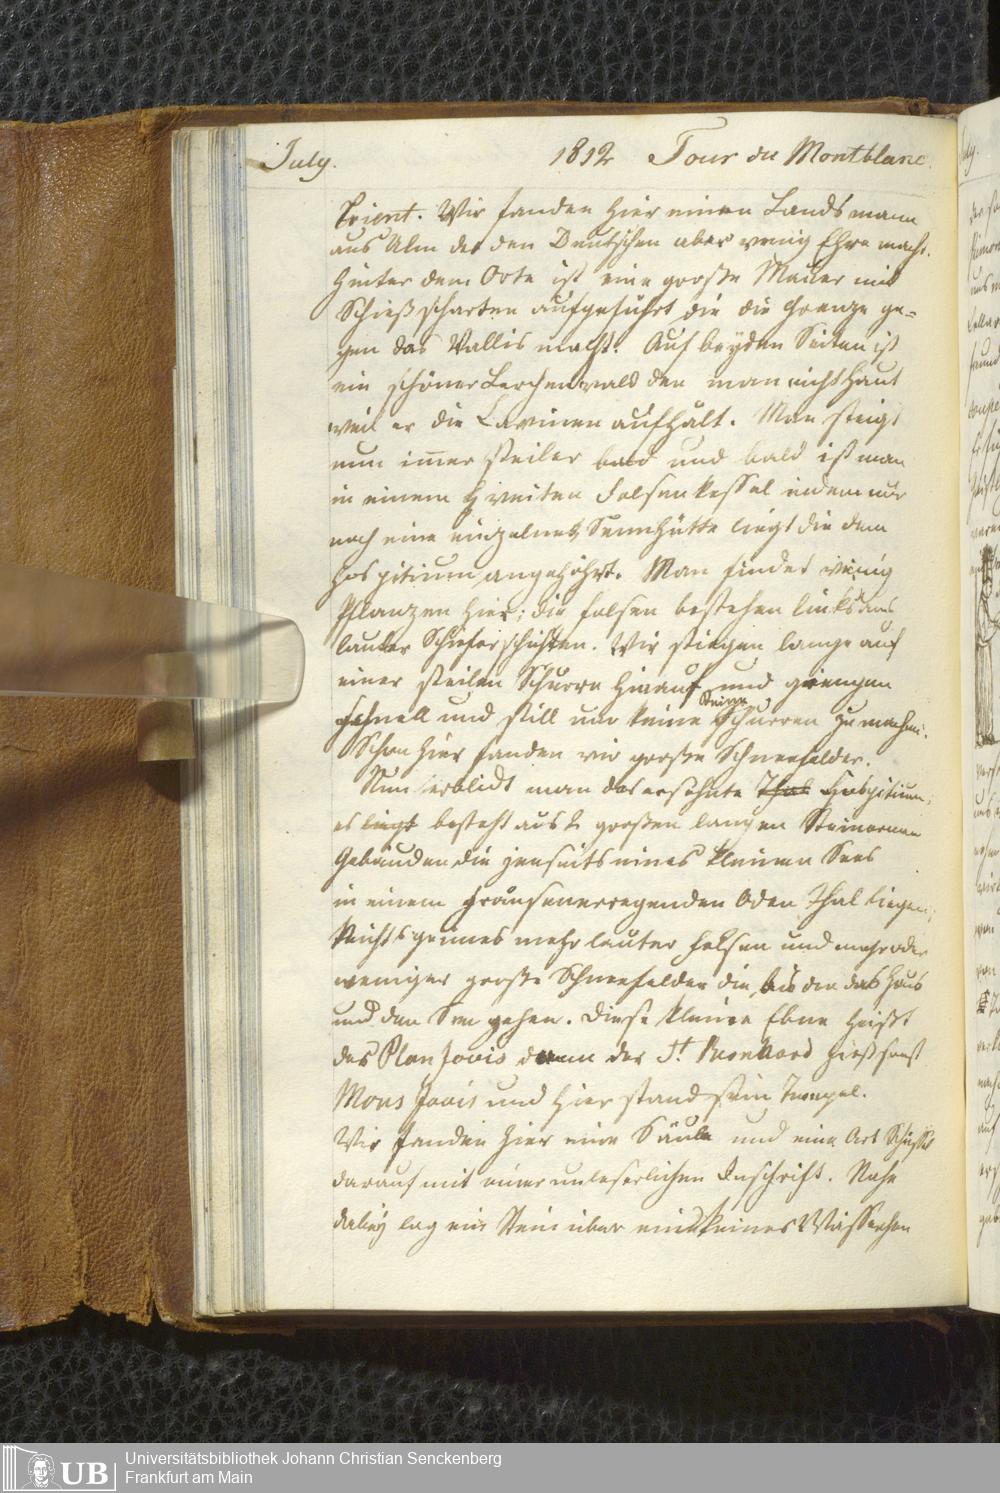 July. 1812 Tour du Montblanc.
Trient. Wir fanden hier einen Landsmann
aus Ulm der den Deutschen aber wenig Ehre macht.
Hinter dem Orte ist eine große Mauer mit
Schießscharten aufgeführt die die Grenze ge-
gen das Wallis macht. Auf beyden Seiten ist
ein schöner Lerchenwald den man nicht haut
weil er die Lavinen aufhält. Man steigt
nun immer steiler bald und bald ist man
in einem zweiten Felsenkessel indem nur
noch eine einzelne Sennhütte liegt die dem
Hospitium angehöhrt. Man findet wenig
Pflanzen hier; die Felsen bestehen links aus
lauter Schieferschichten. Wir stiegen lange auf
einer steilen Schurre hinauf und giengen
schnell und still um keine Steine Schurren zu machen.
Schon hier fanden wir große Schneefelder.
Nun erblickt man das ersehnte Thal Hospitium,
es liegt besteht aus 2 großen langen Steinernen
Gebäuden die jenseits eines kleinen Sees
in einem Grausenerregenden öden Thal liegen;
Nichts grünes mehr lauter Felsen und mehr oder
weniger große Schneefelder die bis an das Haus
und den See gehen. Diese kleine Ebne heißt
das Plan Jovis denn der St. Bernhard hieß sonst
Mons Jovis und hier stand sein Tempel.
Wir fanden hier eine Säule und eine Art Schüssel
darauf mit einer unleserlichen Inschrift. Nahe
dabey lag ein Stein über ein kleines Wässerchen
Universitätsbibliothek Johann Christian Senckenberg
UB Frankfurt am Main